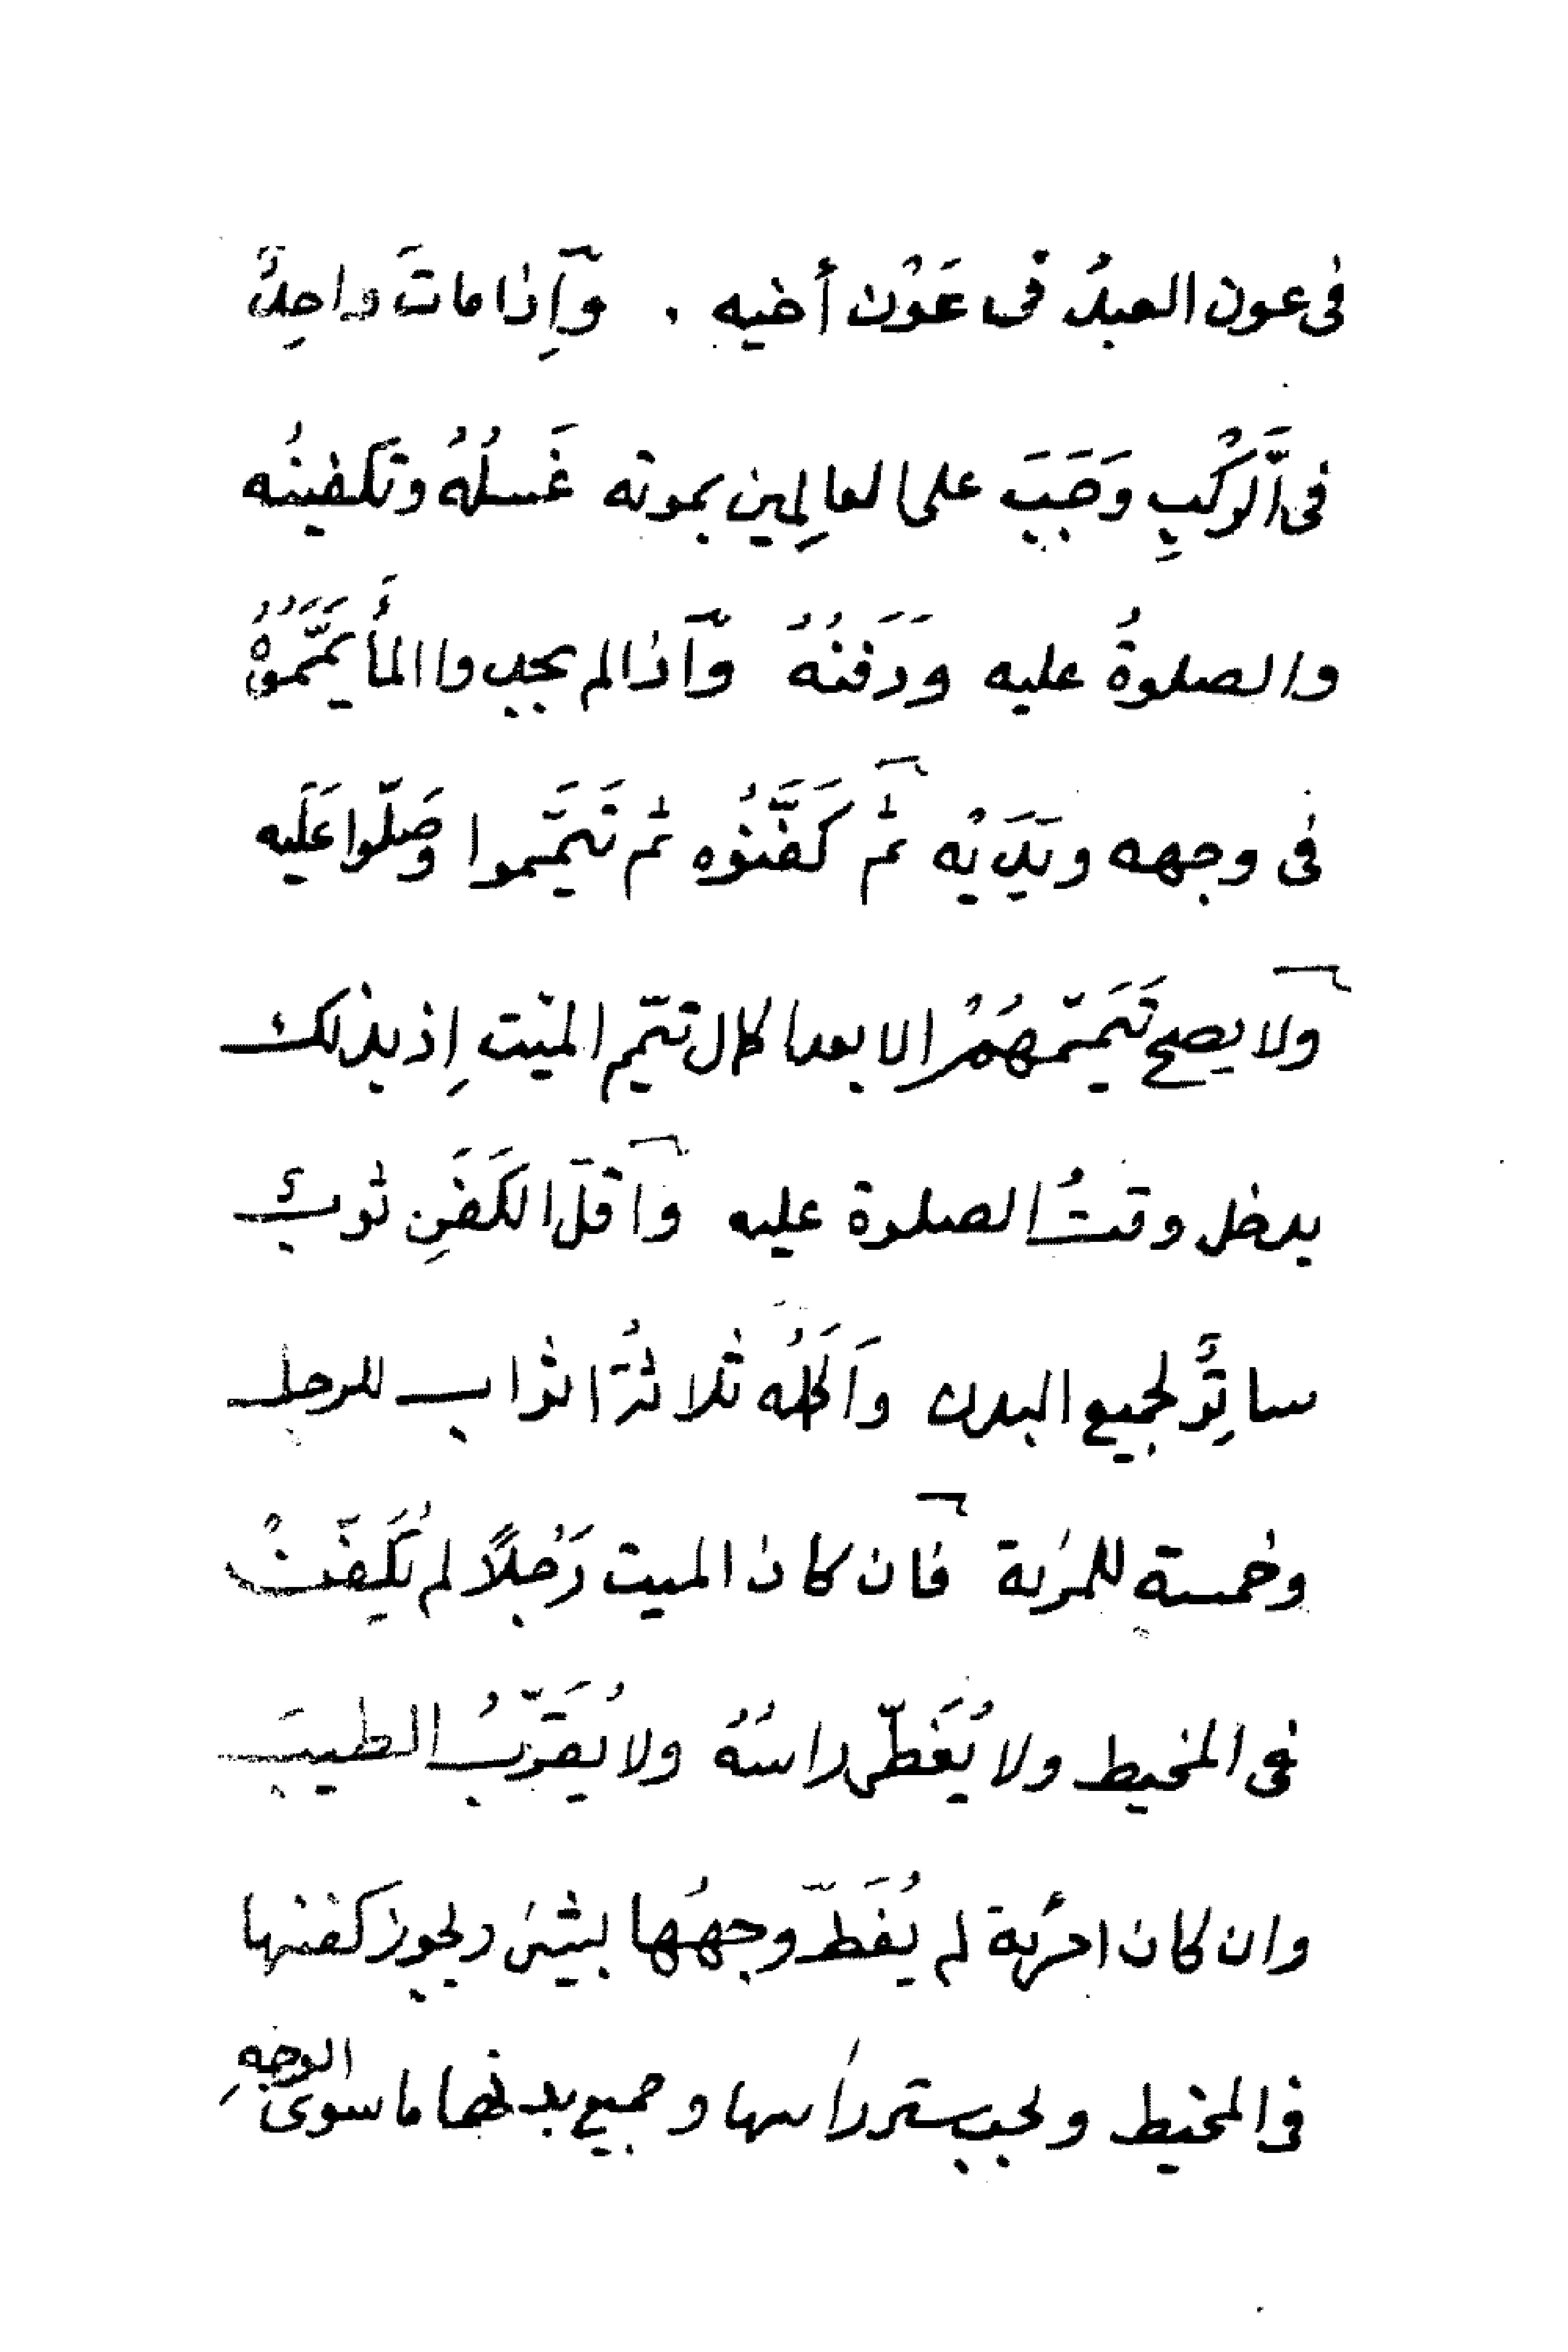 فى عون العبدُ فى عَوْن أخيه . وَإِذا ماتَ واحِدٌ
فى اَلرَّكْبِ وَجَبَ على العالِمين بموته غَسلُهُ وتكفينُه
والصلوةُ عليه ودَفنُهُ وَاذا لم يجدوا المأَ يَمَّمَوُهُ
فى وجهه ويَدَيْه ثم كَفَّنُوُه ثم تَيَمَّموا وصَلّوا عَلَيه
ولا يصح تَيَمّمهُمْ الا بعد اكمال تيمّم الميّت اِذ بذلك
يدخل وقتُ الصلوة عليه وَاَقلّ الكَفَنِ ثوبٌ
ساتِرٌ لجميع البدن وَاَكمَلُه ثلاثةُ اثواب للرجل
وخمسة للمرٔىة فان كان الميت رَجُلًا لم يُكَفّنْ
فى المخيط ولا يُغَطّى راسُهُ ولا يُقَرّبُ الطيبَ
وان كان امرٔىة لم يُغَطّ وجهُها بشئ ويجوز كفنها
فى المخيط ويجب ستر رأسها وجميع بدنها ما سوى الوجهِ